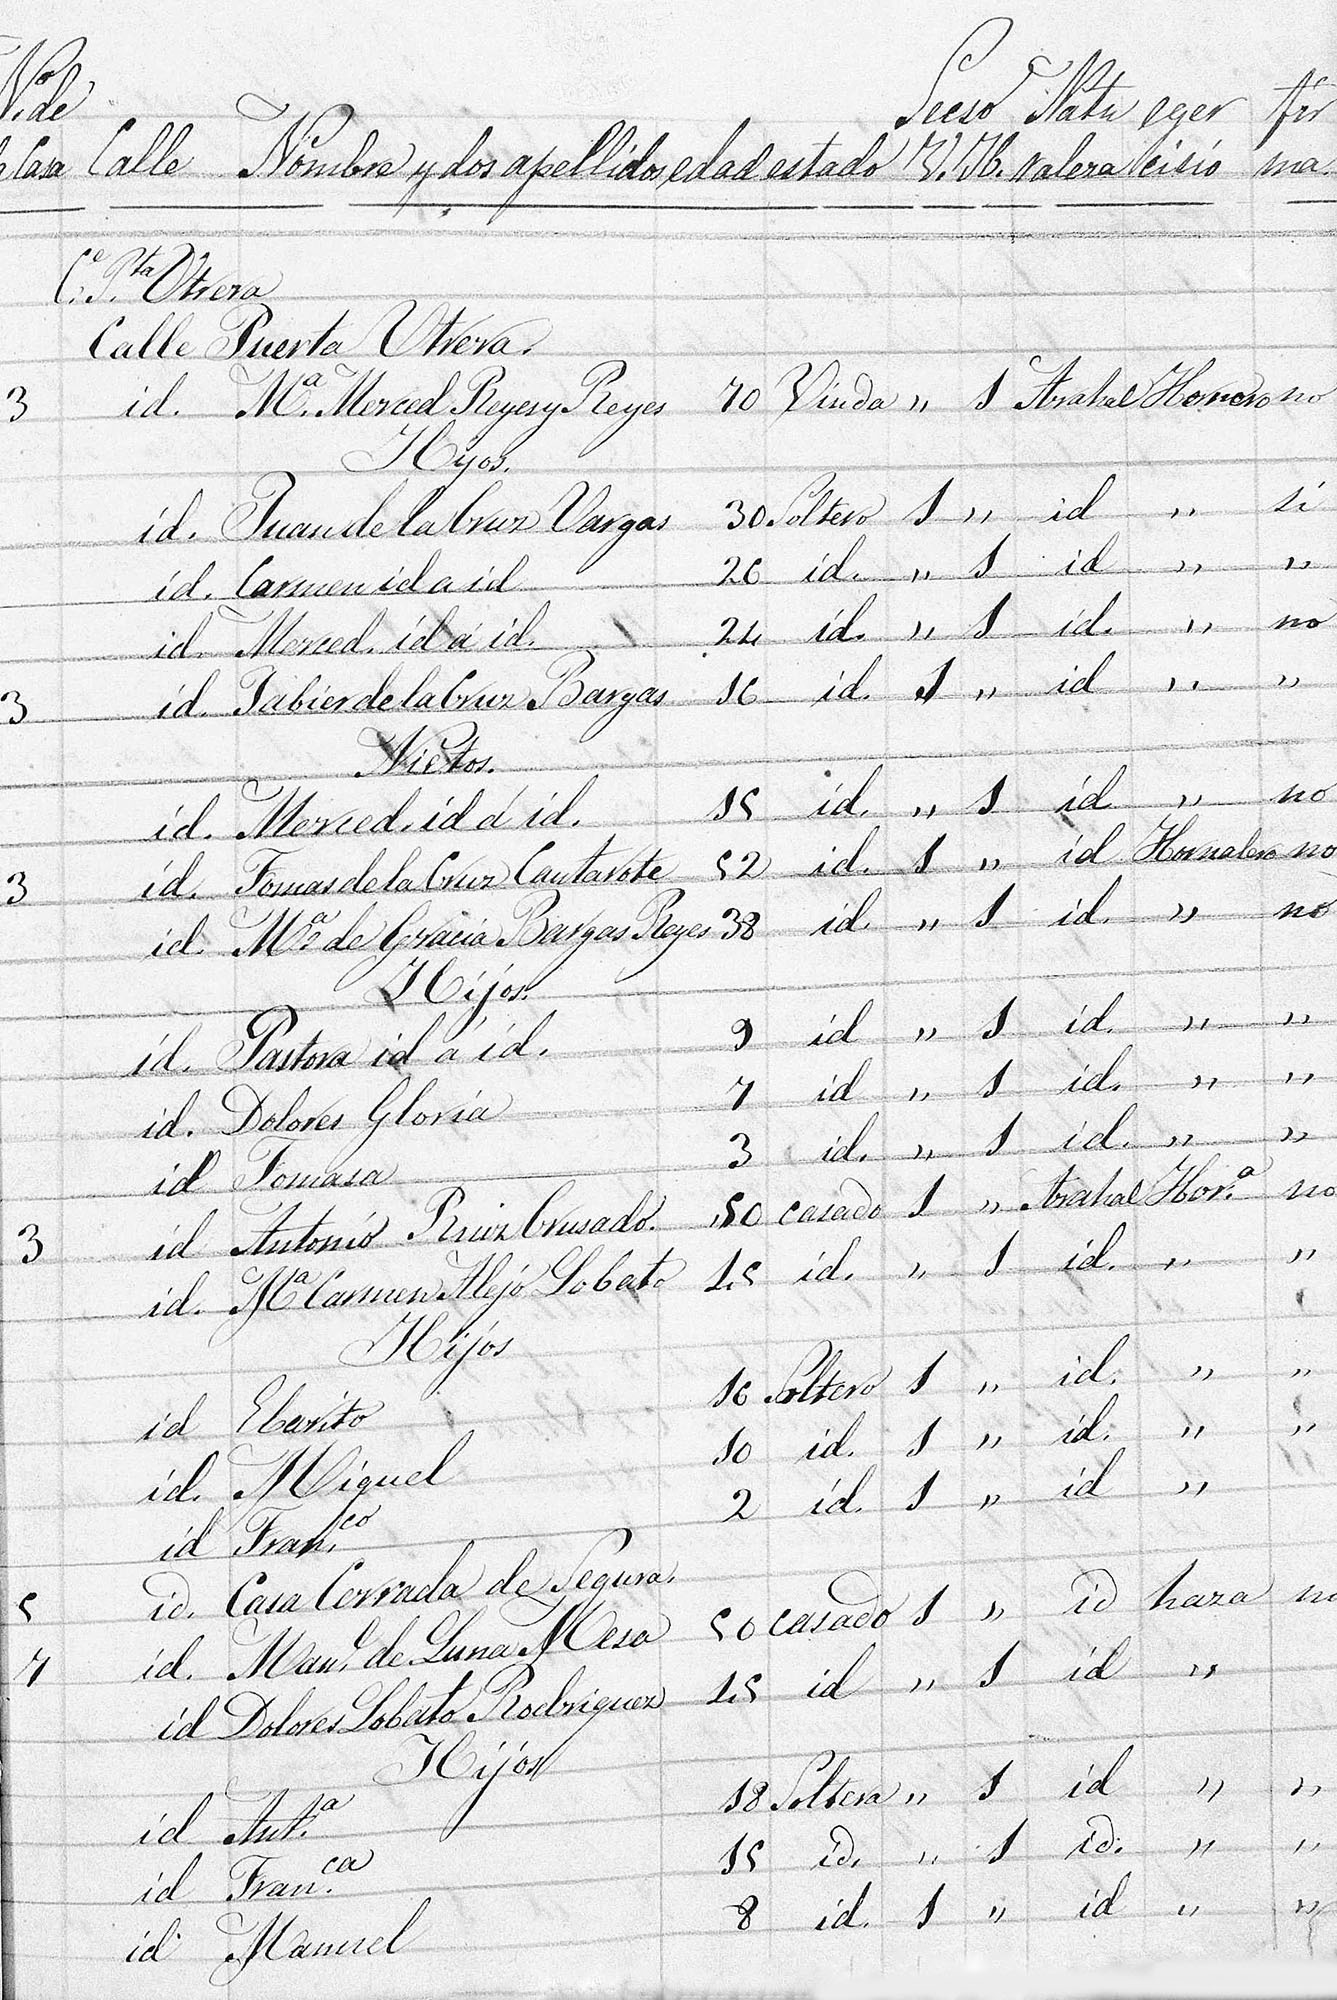 No de Secso Natu eger fir
de Casa Calle Nombre y dos apellidos edad estado V. H. raleza cisio ma.
Ce. Pta Utrera
Calle Puerta Utrera.
3 id. Ma. Merced Reyes y Reyes 70 Viuda „ 1 Arahal Hornero no
Hijos.
id. Juan de la Cruz Vargas 30 Soltero 1 „ id „ si
id. Carmen id a id 26 id. „ 1 id „ „
id. Merced. id a id. 24 id. „ 1 id. „ no
3 id. Jabier de la Cruz Bargas 16 id. 1 „ id „ „
Nietos.
id. Merced. id á id. 15 id. „ 1 id „ no
3 id. Tomas de la Cruz Cantarote 52 id. 1 „ id Hornalero no
id. Ma. de Gracia Bargas Reyes 38 id. „ 1 id. „ no
Hijos.
id. Pastora id a id. 9 id „ 1 id. „ „
id. Dolores Gloria 7 id „ 1 id. „ „
id Tomasa 3 id. „ 1 id. „ „
3 id Antonio Ruiz Crusado. „50 casado 1 „ Arahal Hor.a no
id. Ma Carmen Alejo Lobato 45 id. „ 1 id. „ „
Hijos
id Ebarito 16 Soltero 1 „ id. „ „
id. Miguel 10 id. 1 „ id. „ „
id Fran.co 2 id. 1 „ id „
5 id. Casa Cerrada de Segura.
7 id. Man.l de Luna Mesa 50 casado 1 „ id haza no
id Dolores Lobato Rodriguez 45 id „ 1 id „
Hijos
id Ant.a 18 Soltera „ 1 id „ „
id Fran.ca 15 id. „ 1 id. „ „
id Manuel 8 id. 1 „ id „ „